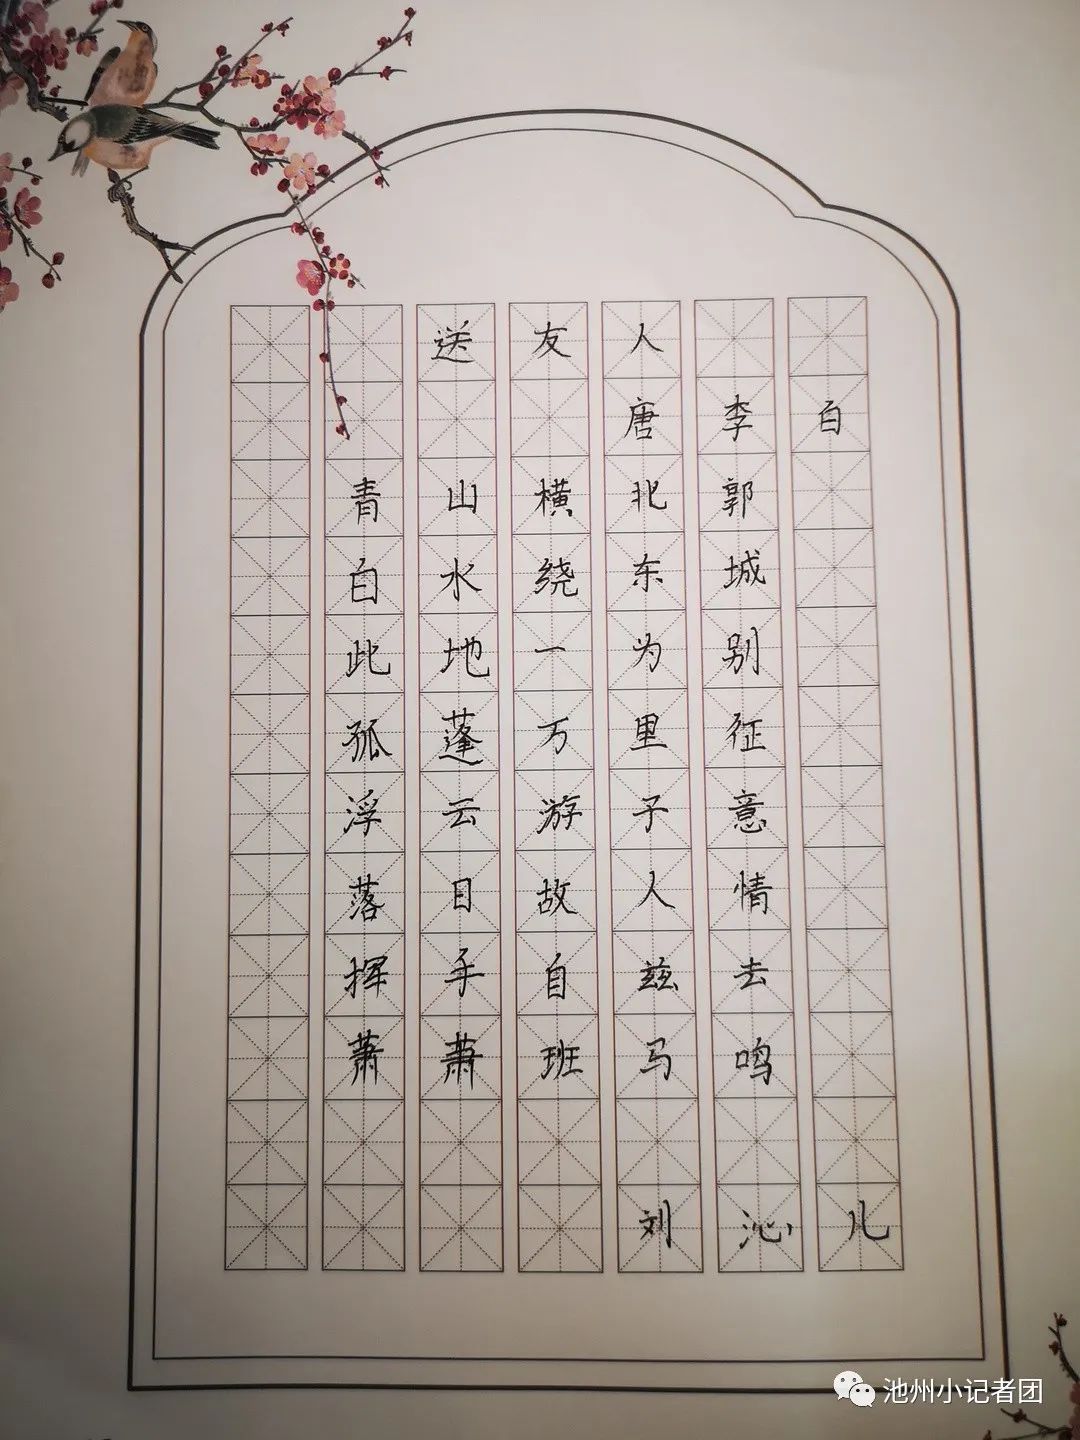 送友人
唐李白
青山横北郭
白水绕东城
此地一为别
孤蓬万里征
浮云游子意
落日故人情
挥手自兹去
萧萧班马鸣
刘沁儿
池州小记者团